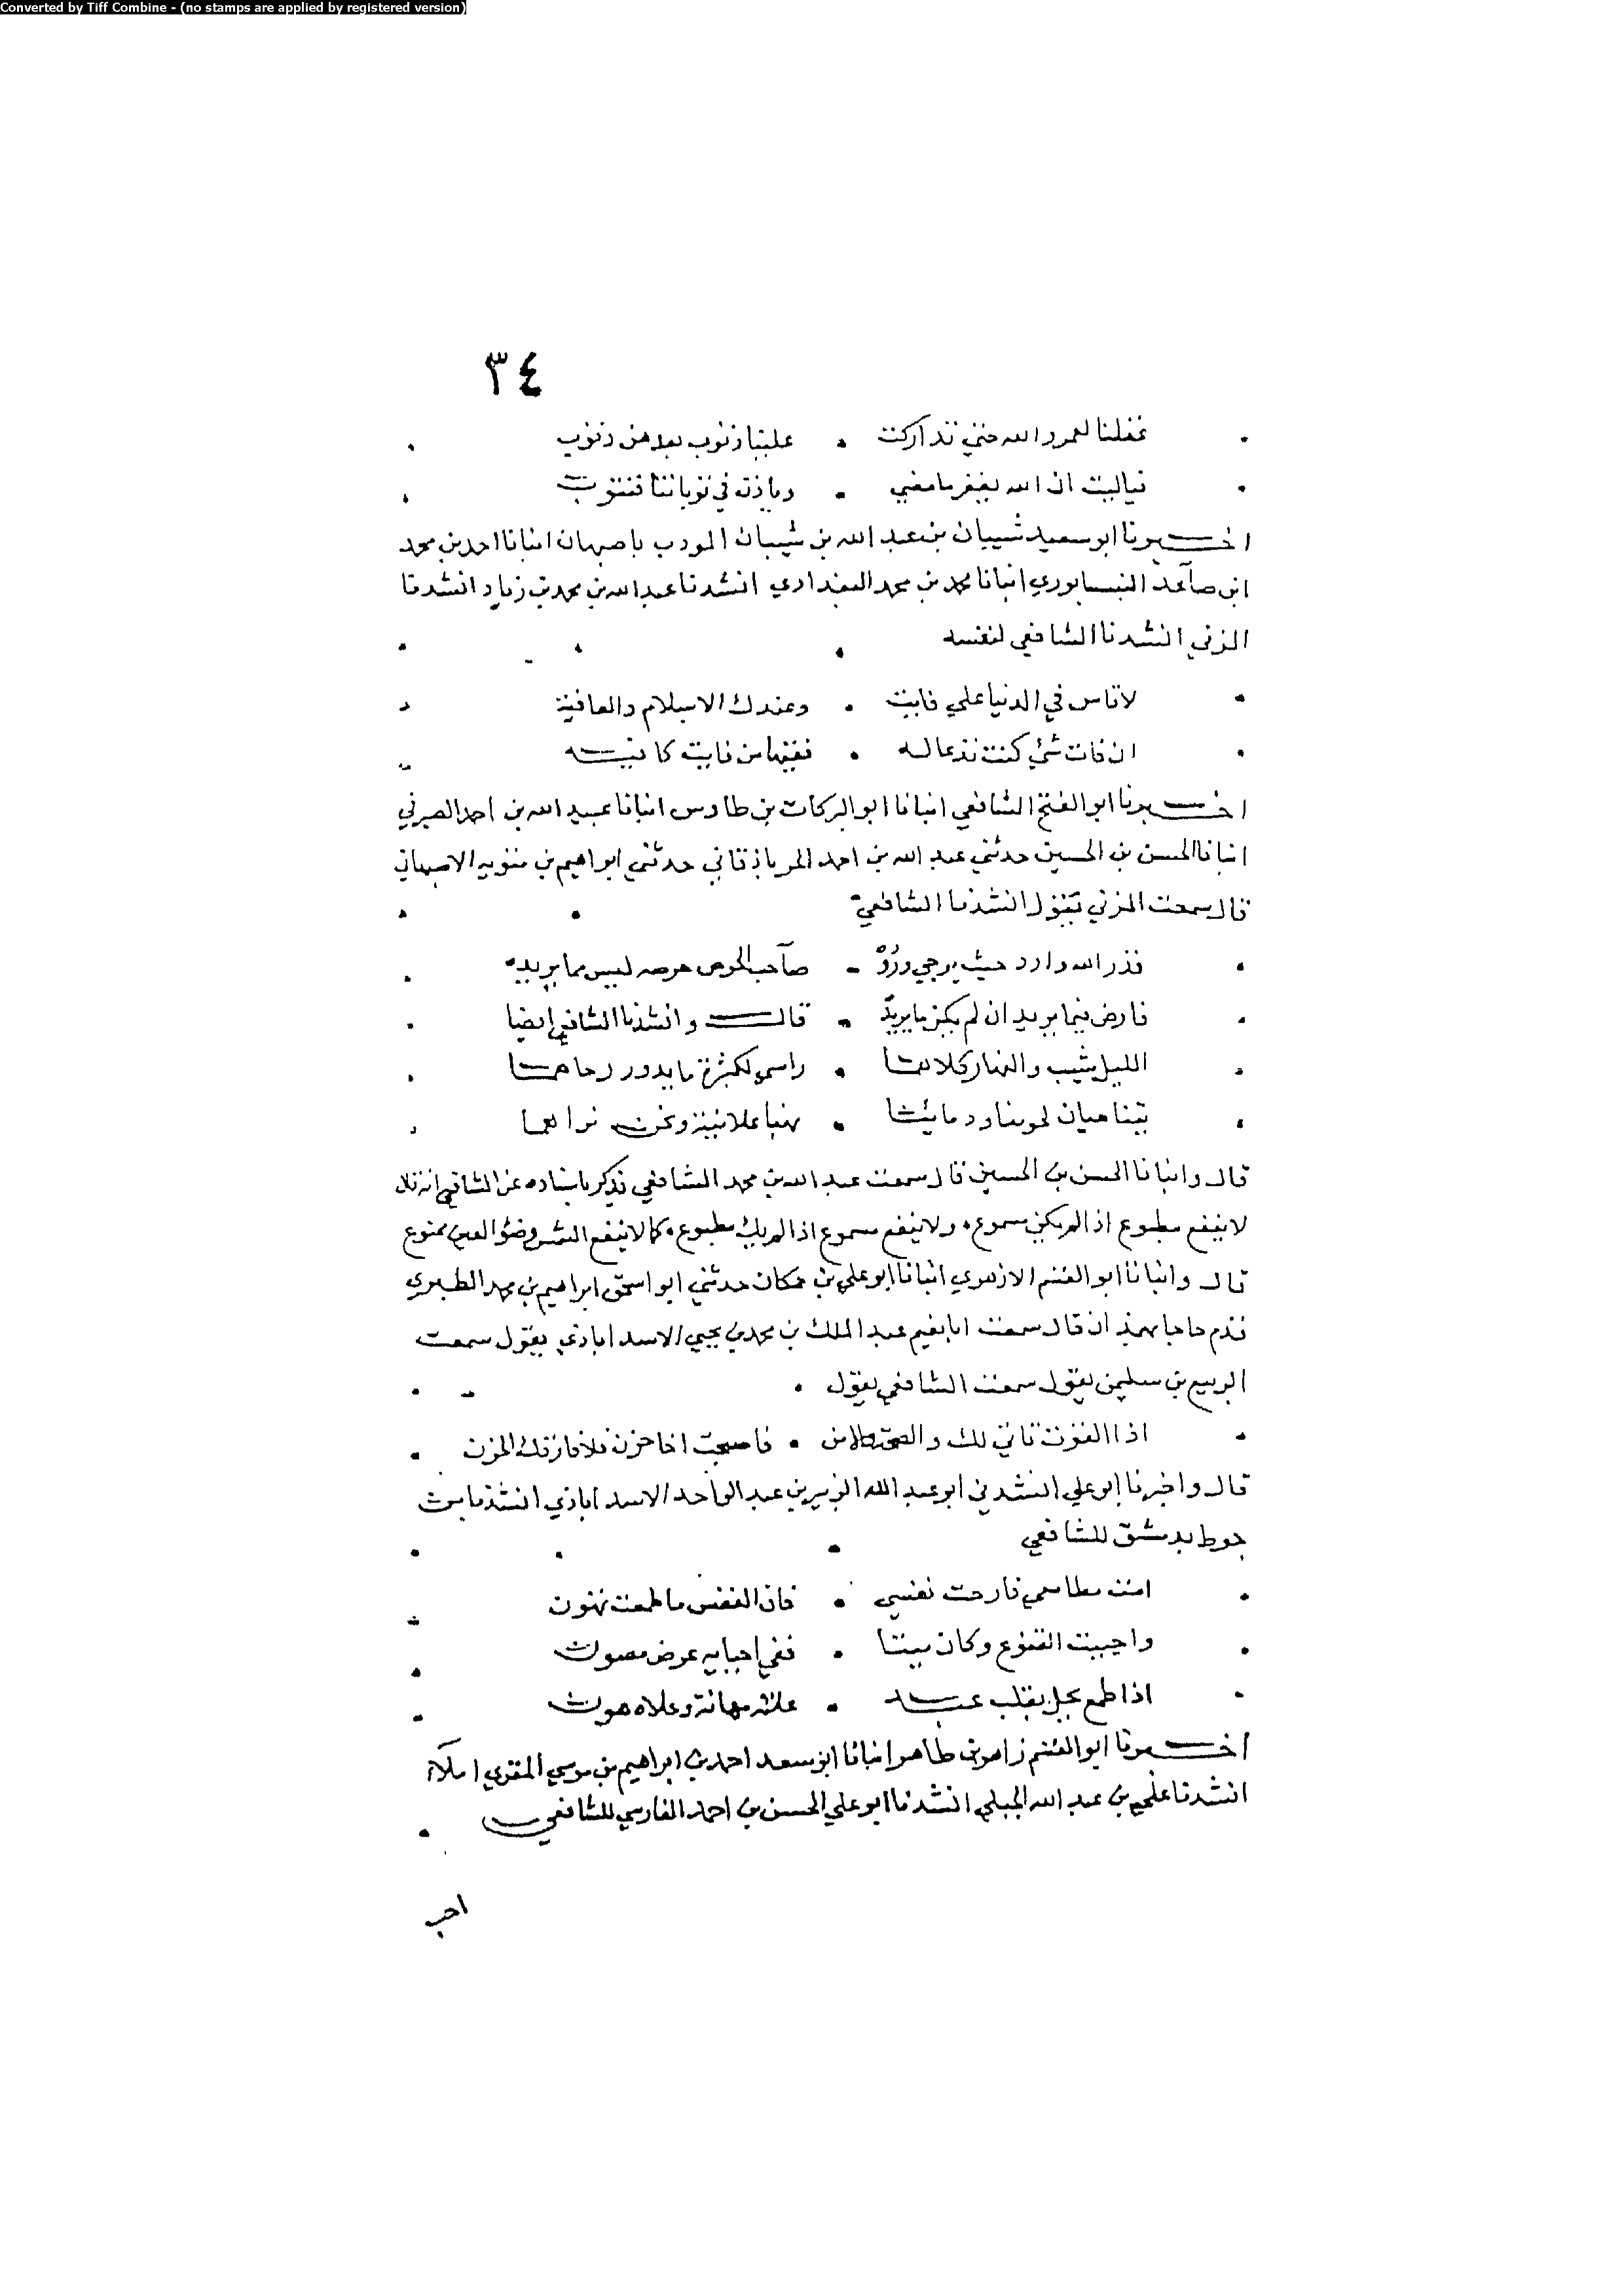 Converted by Tiff Combine - (no stamps are applied by registered version)
٣٤
غفلنا لعمرو الله حتي تداركت • علينا ذنوب بعدهن ذنوب
فياليت ان الله يغفر ما مضي • وياذن في توباتنا فنتوب
اخبرنا ابو سعيد شيبان بن عبد الله بن شيبان المودب باصبهان انبانا احمد بن محمد
ابن صاعد النيسابوري انبانا محمد بن محمد البغدادي انشدنا عبد الله بن محمد بن زياد انشدنا
المزني انشدنا الشافعي لنفسه
لا تاس في الدنيا علي فايت • وعندك الاسلام والعافية
ان فات شئ كنت تدعا له • ففيهما من فايت كافيه
اخبرنا ابو الفتح الشافعي انبانا ابو البركات بن طاوس انبانا عبيد الله بن احمد الصيرفي
انبانا الحسن بن الحسين حدثني عبد الله بن احمد حدثني ابراهيم بن متويه الاصبهاني
قال سمعت المزني يقول انشدنا الشافعي
قدر الله وارد حيث يرجي وروده • صاحب الحرص حرصه ليس مما يريده
فارض فيما يريد ان لم يكن ما يريد • قال وانشدنا الشافعي ايضا
الليل شيب والنهار كلاهما • راسي لكثرة ما يدور رحاهما
يتناهبان لحومنا ودماءنا • نهبا علانية ونحن نراهما
قال وانبانا الحسن بن الحسين قال سمعت عبد الله بن محمد الشافعي يذكر باسناده عن الشافعي انه قال
لا ينفع مطبوع اذا لم يكن مسموع، ولا ينفع مسموع اذا لم يك مطبوع، كما لا ينفع الشمس وضؤ العين ممنوع
قال وانبانا ابو القسم الازهري انبانا ابو علي بن حمكان حدثني ابو اسحق ابراهيم بن محمد الطبري
قدم حاجا بهمذان قال سمعت ابا نعيم عبد الملك بن محمد بن يحيي الاسدابادي يقول سمعت
الربيع بن سليمن يقول سمعت الشافعي يقول
اذا القوت تاتي لك والصحة والامن • فاصبحت اخا حزن فلا فارقك الحزن
قال واخبرنا ابو علي انشدني ابو عبد الله الزبير بن عبد الواحد الاسدابادي انشدنا
جوط بدمشق للشافعي
امت مطامعي فارحت نفسي • فان النفس ما طمعت تهون
واحييت القنوع وكان ميتا • ففي احيايه عرض مصون
اذا طمع يحل بقلب عبد • علته مهانة وعلاه هون
اخبرنا ابو القسم زاهر بن طاهر انبانا ابو سعد احمد بن ابراهيم بن موسي المقري املاء
انشدنا علي بن عبد الله الجبلي انشدنا ابو علي الحسن بن احمد الفارسي للشافعي
احب